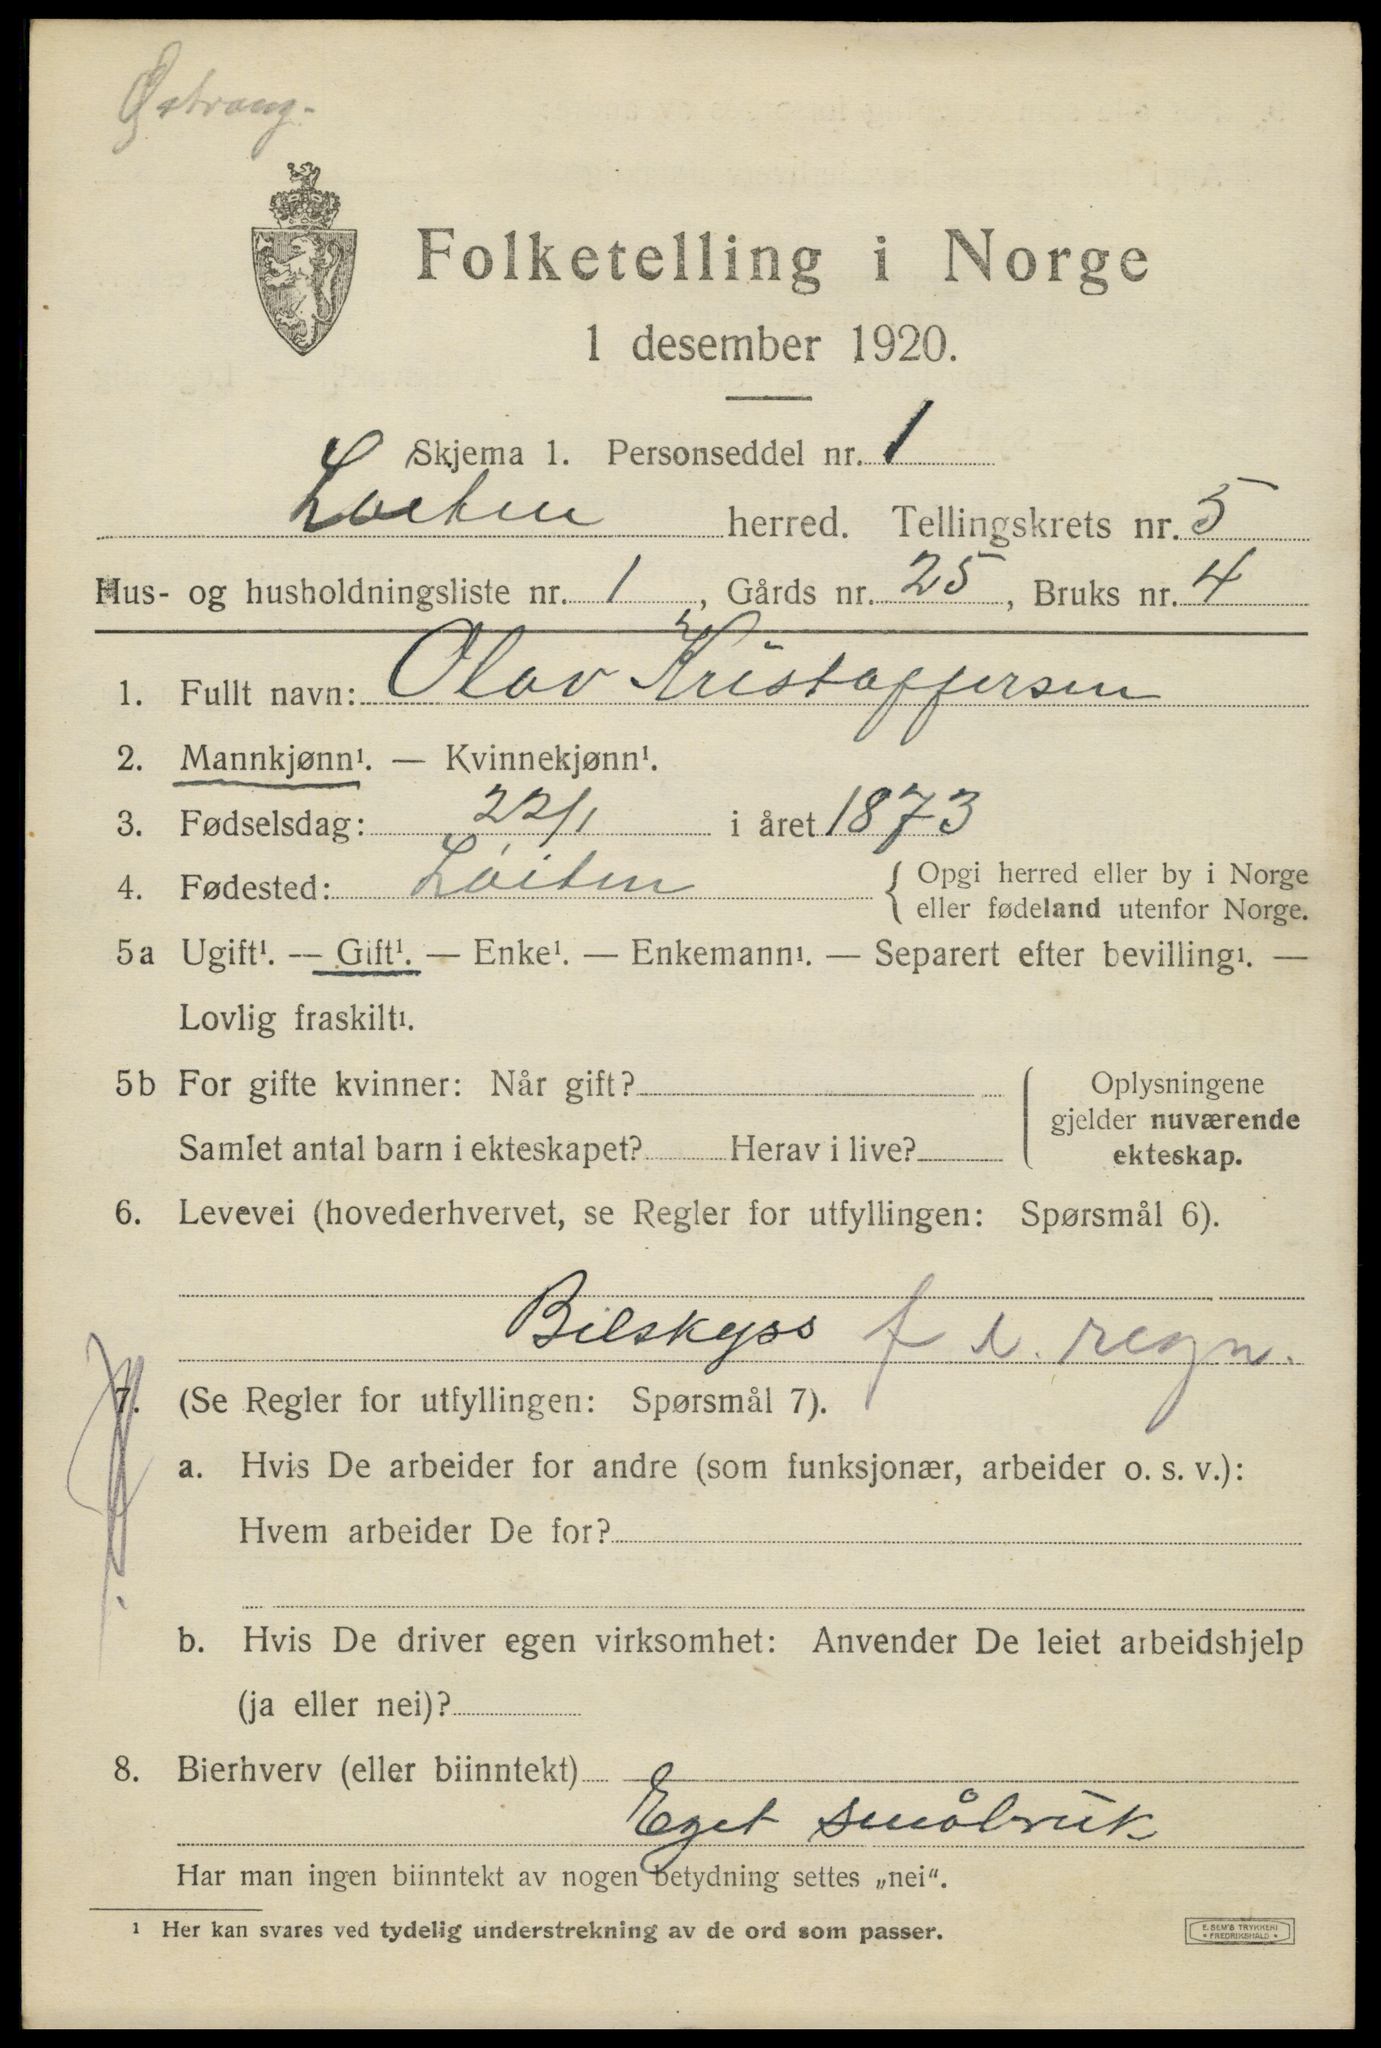 Østvang.
Folketelling i Norge
1 desember 1920.
Skjema 1. Personseddel nr. 1
Løiten herred. Tellingskrets nr. 5
Hus- og husholdningsliste nr. 1, Gårds nr. 25, Bruks nr. 4
1. Fullt navn: Olav Kristoffersen
2. Mannkjønn¹. — Kvinnekjønn¹.
3. Fødselsdag: 22/1 i året 1873
4. Fødested: Løiten { Opgi herred eller by i Norge
eller fødeland utenfor Norge.
5a Ugift¹. — Gift¹. — Enke¹. — Enkemann¹. — Separert efter bevilling¹. —
Lovlig fraskilt¹.
5b For gifte kvinner: Når gift?
Samlet antal barn i ekteskapet? Herav i live?
{ Oplysningene
gjelder nuværende
ekteskap.
6. Levevei (hovederhvervet, se Regler for utfyllingen: Spørsmål 6).
Bilskyss f e. regn.
7. (Se Regler for utfyllingen: Spørsmål 7).
a. Hvis De arbeider for andre (som funksjonær, arbeider o. s. v.):
Hvem arbeider De for?
b. Hvis De driver egen virksomhet: Anvender De leiet arbeidshjelp
(ja eller nei)?
8. Bierhverv (eller biinntekt)
Eget småbruk
Har man ingen biinntekt av nogen betydning settes „nei“.
¹ Her kan svares ved tydelig understrekning av de ord som passer.
E. SEM'S TRYKKERI
FREDRIKSHALD